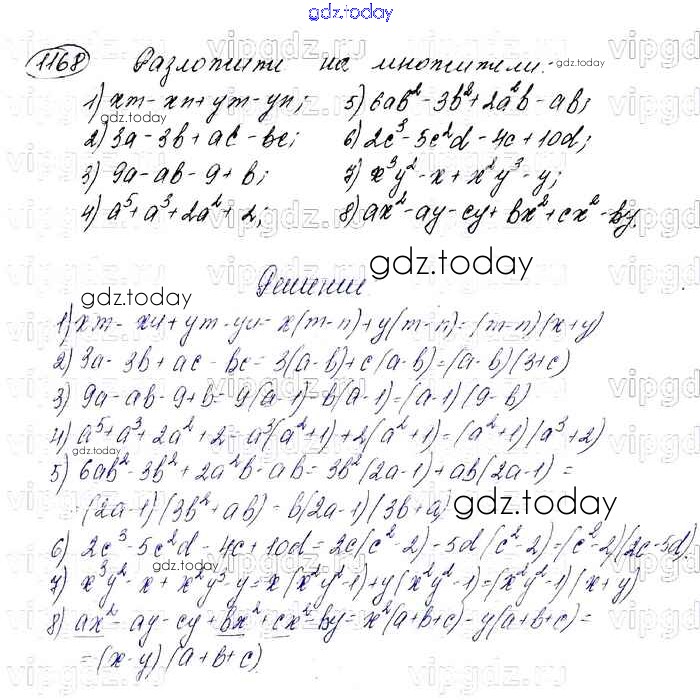 gdz.today
1168 Разложить на множители:
1) xm - xn + ym - yn; 5) 6ab² - 3b² + 2a²b - ab;
2) 3a - 3b + ac - bc; 6) 2c³ - 5c²d - 4c + 10d;
3) 9a - ab - 9 + b; 7) x³y² - x + x²y³ - y;
4) a⁵ + a³ + 2a² + 2; 8) ax² - ay - cy + bx² + cx² - by.
gdz.today
Решение
gdz.today
1) xm - xn + ym - yn = x(m-n) + y(m-n) = (m-n)(x+y)
2) 3a - 3b + ac - bc = 3(a-b) + c(a-b) = (a-b)(3+c)
3) 9a - ab - 9 + b = 9(a-1) - b(a-1) = (a-1)(9-b)
4) a⁵ + a³ + 2a² + 2 = a³(a²+1) + 2(a²+1) = (a²+1)(a³+2)
5) 6ab² - 3b² + 2a²b - ab = 3b²(2a-1) + ab(2a-1) =
= (2a-1)(3b²+ab) = b(2a-1)(3b+a)
gdz.today
6) 2c³ - 5c²d - 4c + 10d = 2c(c²-2) - 5d(c²-2) = (c²-2)(2c-5d)
7) x³y² - x + x²y³ - y = x(x²y²-1) + y(x²y²-1) = (x²y²-1)(x+y)
8) ax² - ay - cy + bx² + cx² - by = x²(a+b+c) - y(a+b+c) =
= (x-y)(a+b+c)